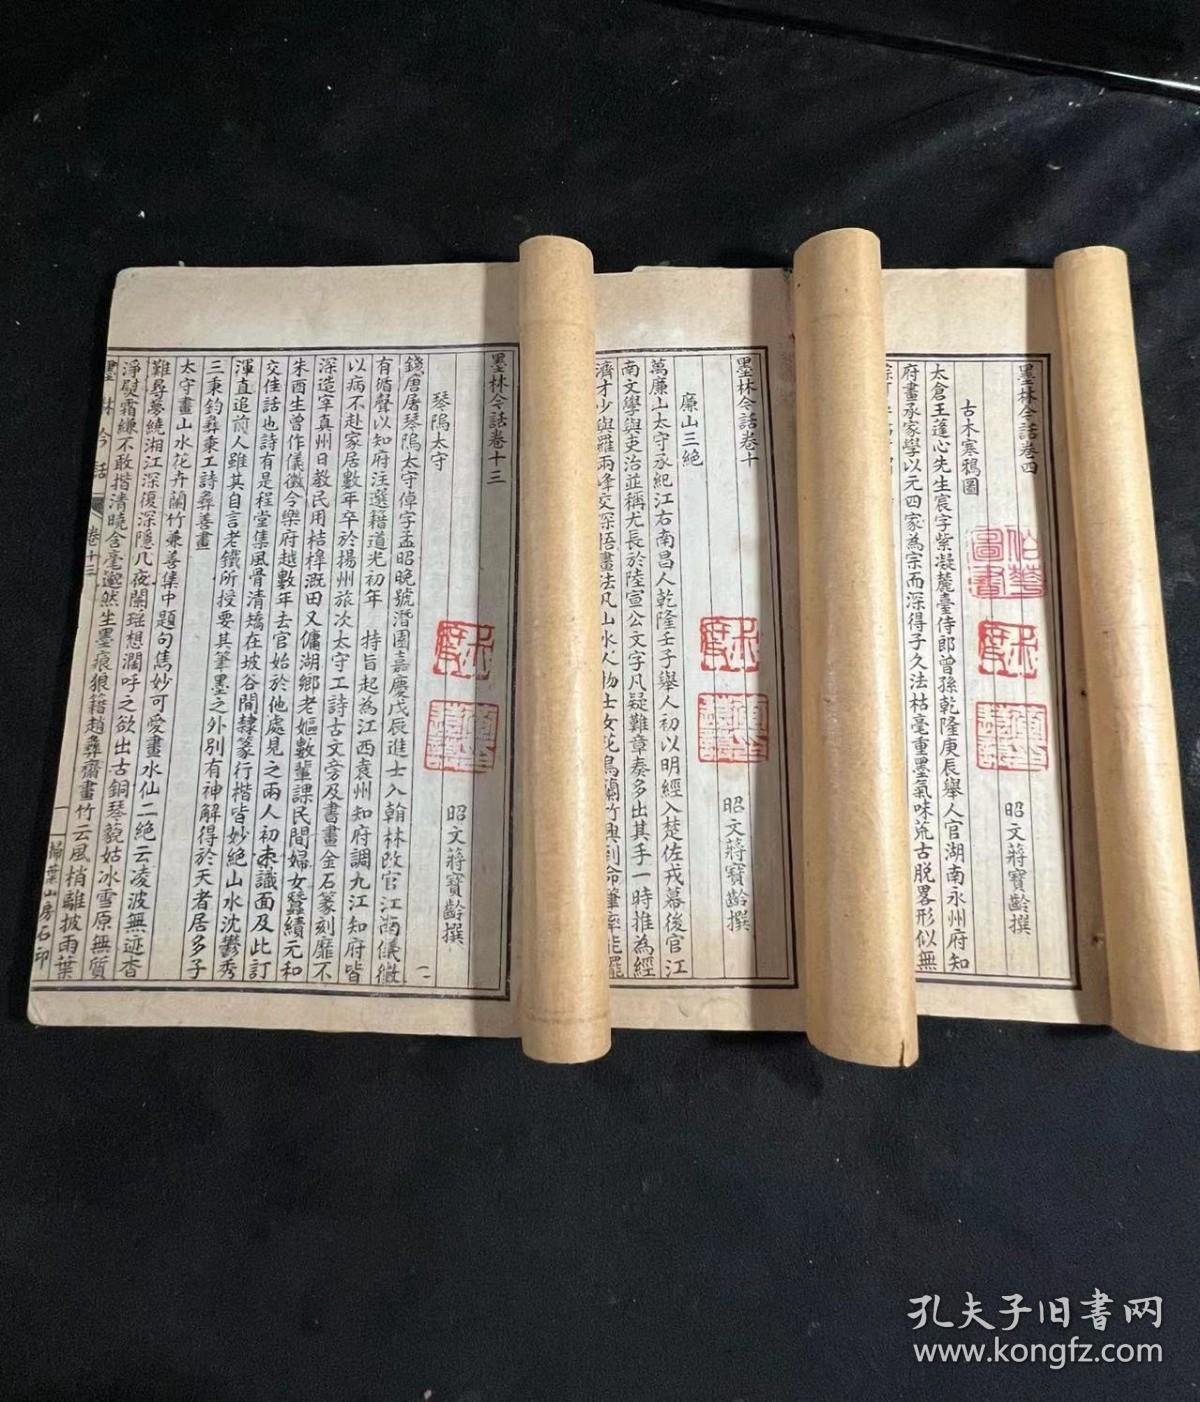 墨林今話卷四
昭文蔣寶齡撰
古木寒鴉圖
太倉王蓬心先生宸字紫凝麓臺侍郎曾孫乾隆庚辰舉人官湖南永州府知
府畫承家學以元四家為宗而深得子久法枯毫重墨氣味荒古脫畧形似無
墨林今話卷十
昭文蔣寶齡撰
廉山三絕
萬廉山太守承紀江右南昌人乾隆壬子舉人初以明經入楚佐戎幕後官江
南文學與吏治並稱尤長於陸宣公文字凡疑難章奏多出其手一時推為經
濟才少與羅兩峰交深悟畫法凡山水人物士女花鳥蘭竹興到命筆率能罷
墨林今話卷十三
昭文蔣寶齡撰
琴隖太守
錢唐屠琴隖太守倬字孟昭晚號潛園嘉慶戊辰進士入翰林改官江南儀徵
有循聲以知府汪選籍道光初年 特旨起為江西袁州知府調九江知府皆
以病不赴家居數年卒於揚州旅次太守工詩古文旁及書畫金石篆刻靡不
深造宰真州日教民用桔槔溉田又傭湖鄉老嫗數輩課民間婦女蠶績元和
朱酉生曾作儀徵令樂府越數年去官始於他處見之兩人初未識面及此訂
交佳話也詩有是程堂集風骨清矯在坡谷間隸篆行楷皆妙絕山水沈鬱秀
渾直追前人雖其自言老鐵所授要其筆墨之外別有神解得於天者居多子
三秉鈞彞秉工詩彞善畫
太守畫山水花卉蘭竹兼善集中題句雋妙可愛畫水仙二絕云凌波無迹杳
難尋夢繞湘江深復深隱几夜闌瑶想濶呼之欲出古銅琴藐姑冰雪原無質
淨熨霜縑不敢揩清曉含毫邈然坐墨痕狼籍趙彞齋畫竹云風梢離披雨葉
墨林今話
卷十三
一
掃葉山房石印
伯華圖書
孔夫子旧書网
www.kongfz.com